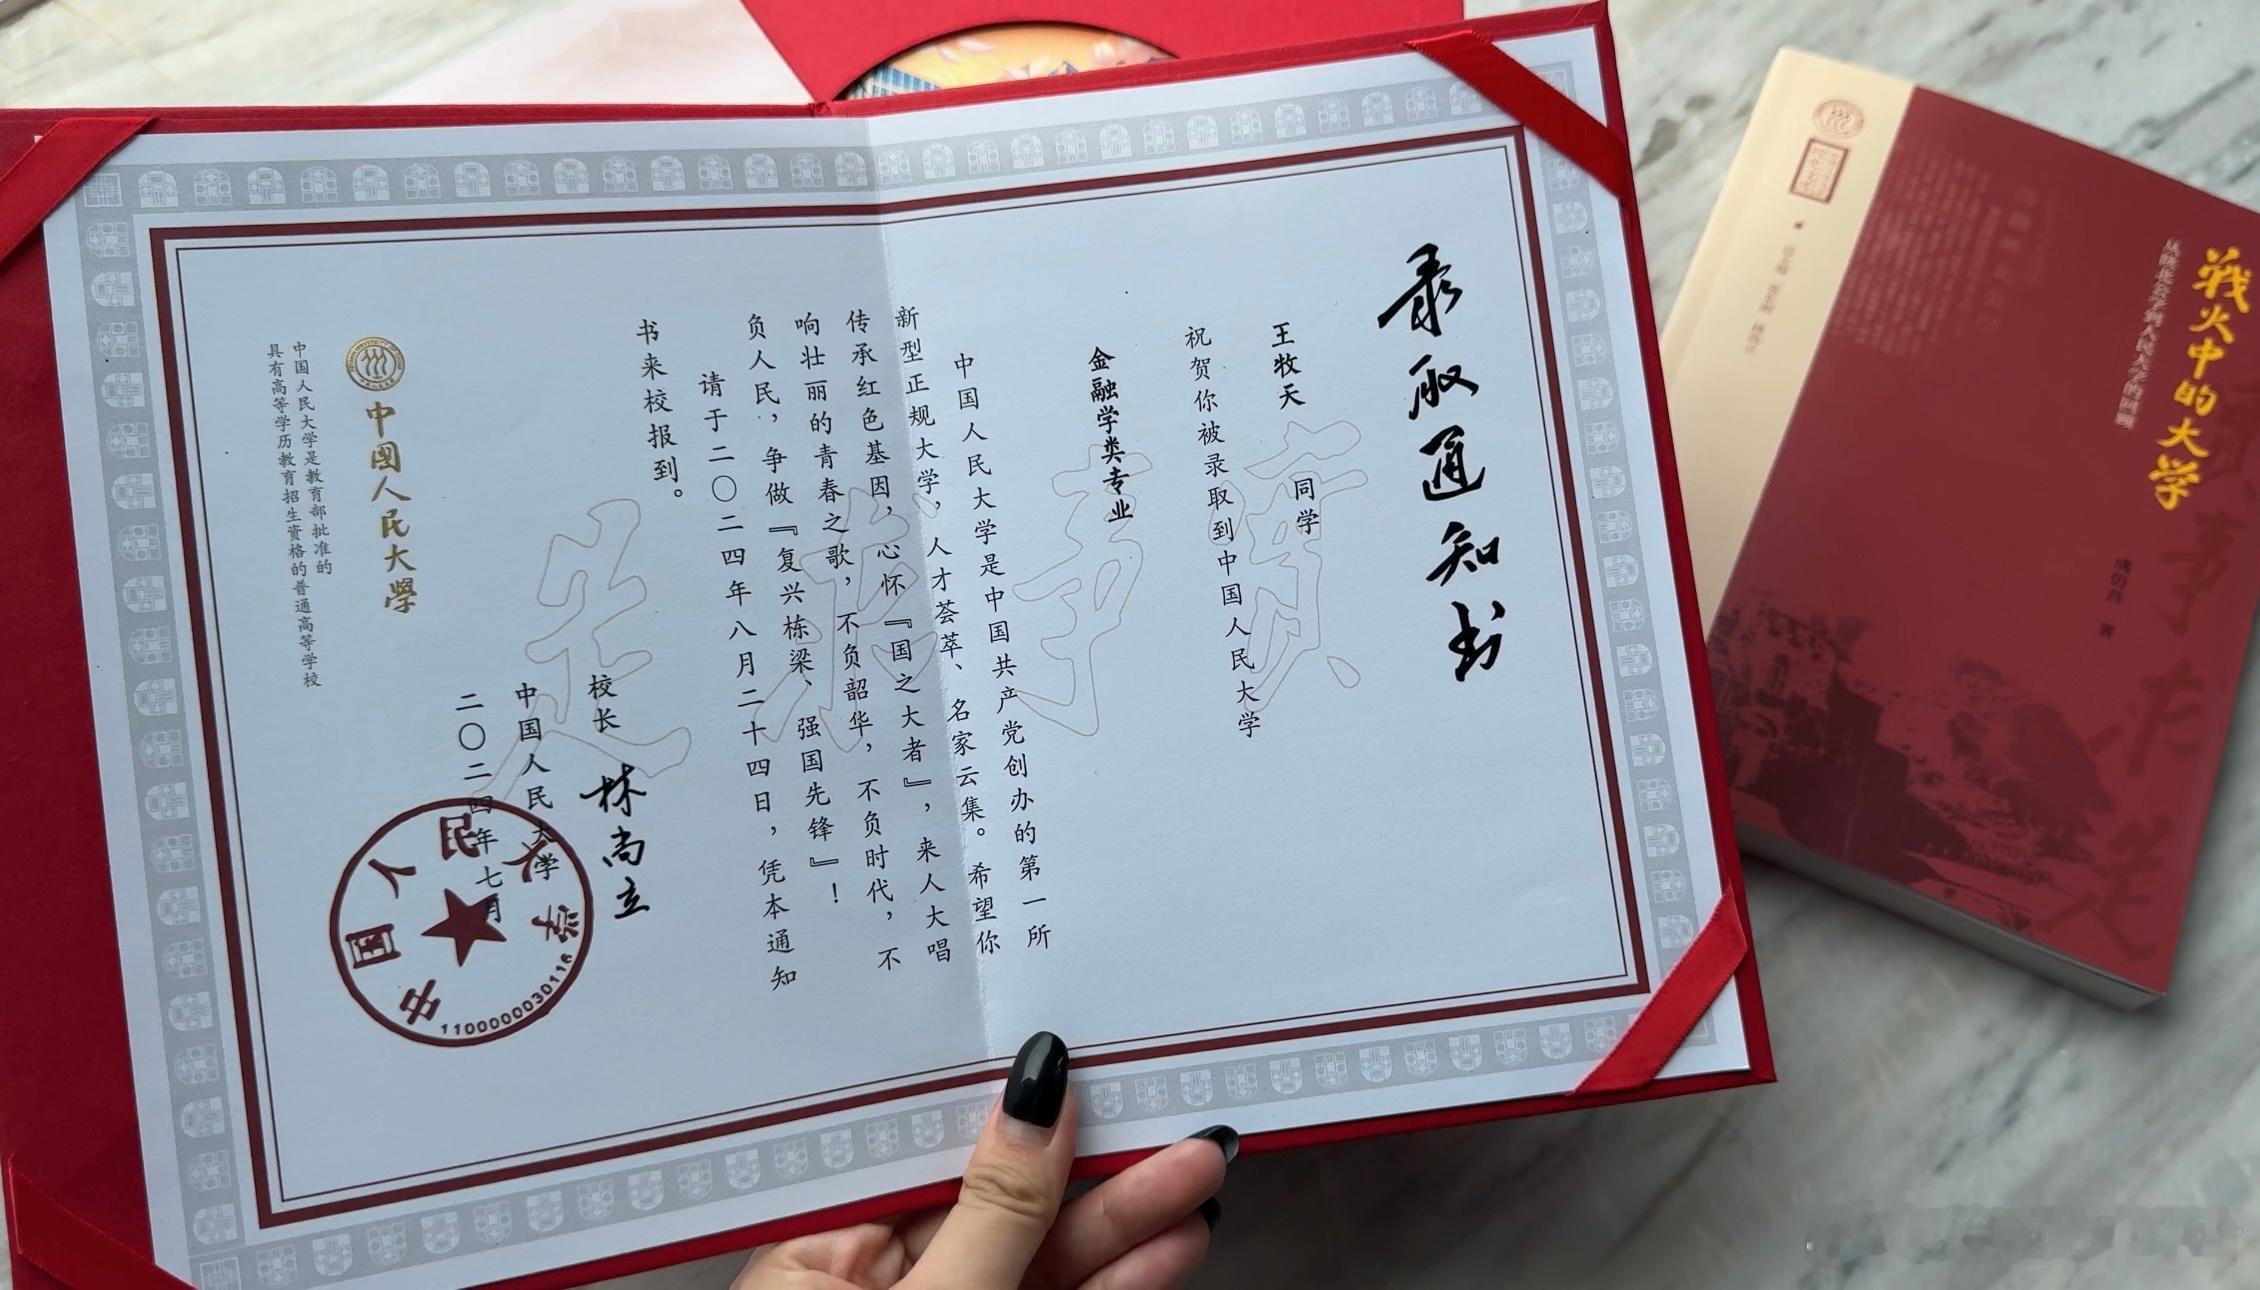 录取通知书
王牧天 同学
祝贺你被录取到中国人民大学
金融学类专业
中国人民大学是中国共产党创办的第一所
新型正规大学，人才荟萃、名家云集。希望你
传承红色基因，心怀『国之大者』，来人大唱
响壮丽的青春之歌，不负韶华，不负时代，不
负人民，争做『复兴栋梁、强国先锋』！
请于二〇二四年八月二十四日，凭本通知
书来校报到。
校长 林尚立
中国人民大学
二〇二四年七月
中國人民大學
中国人民大学是教育部批准的
具有高等学历教育招生资格的普通高等学校
实事求是
中国人民大学
1100000030116
战火中的大学
从陕北公学到人民大学的回顾
成仿吾 著
实事求是